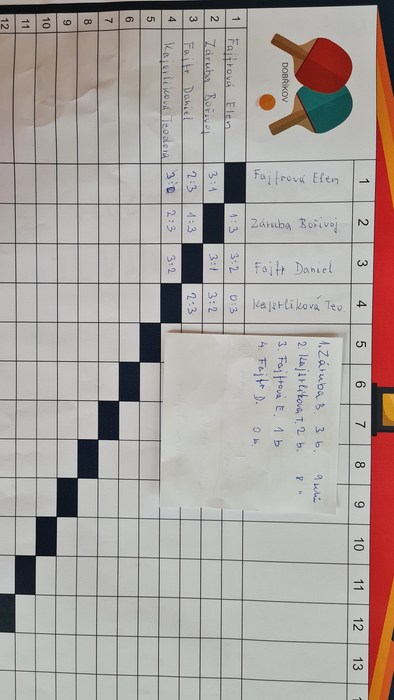 DOBŘÍKOV
1 2 3 4 5 6 7 8 9 10 11 12 13
Fajfrová Elen
Záruba Bořivoj
Fajfr Daniel
Kajerlíková Teo.
1 Fajfrová Elen 1:3 3:2 0:3
2 Záruba Bořivoj 3:1 3:1 3:2
3 Fajfr Daniel 2:3 1:3 2:3
4 Kajerlíková Teodora 3:0 2:3 3:2
5
6
7
8
9
10
11
12
1. Záruba B. 3 b. 9
2. Kajerlíková T. 2 b. 8 "
3. Fajfrová E. 1 b
4. Fajfr D. 0 b.